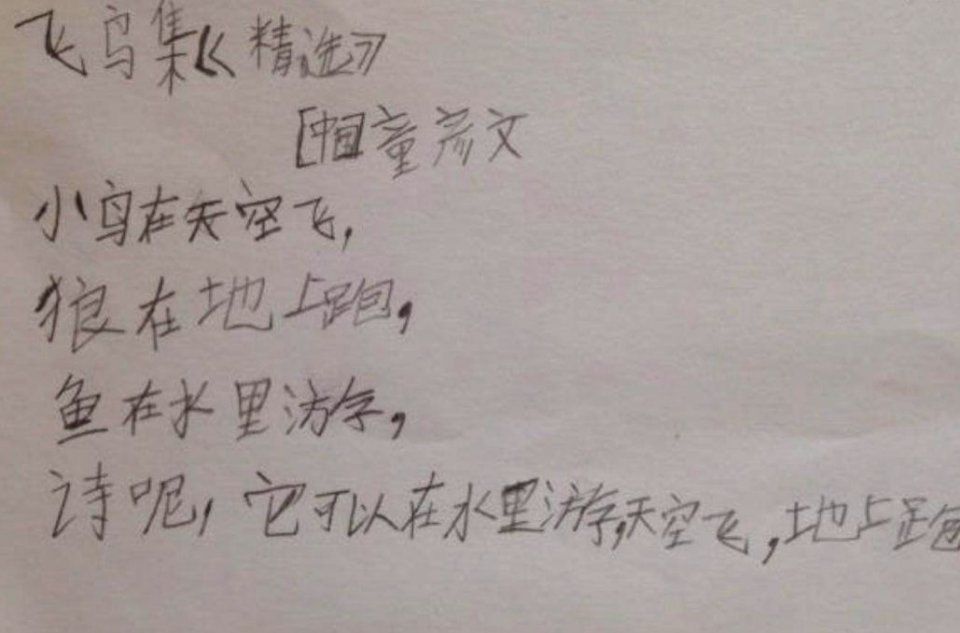 飞鸟集《精选》
[中国]童彦文
小鸟在天空飞，
狼在地上跑，
鱼在水里游，
诗呢，它可以在水里游，天空飞，地上跑